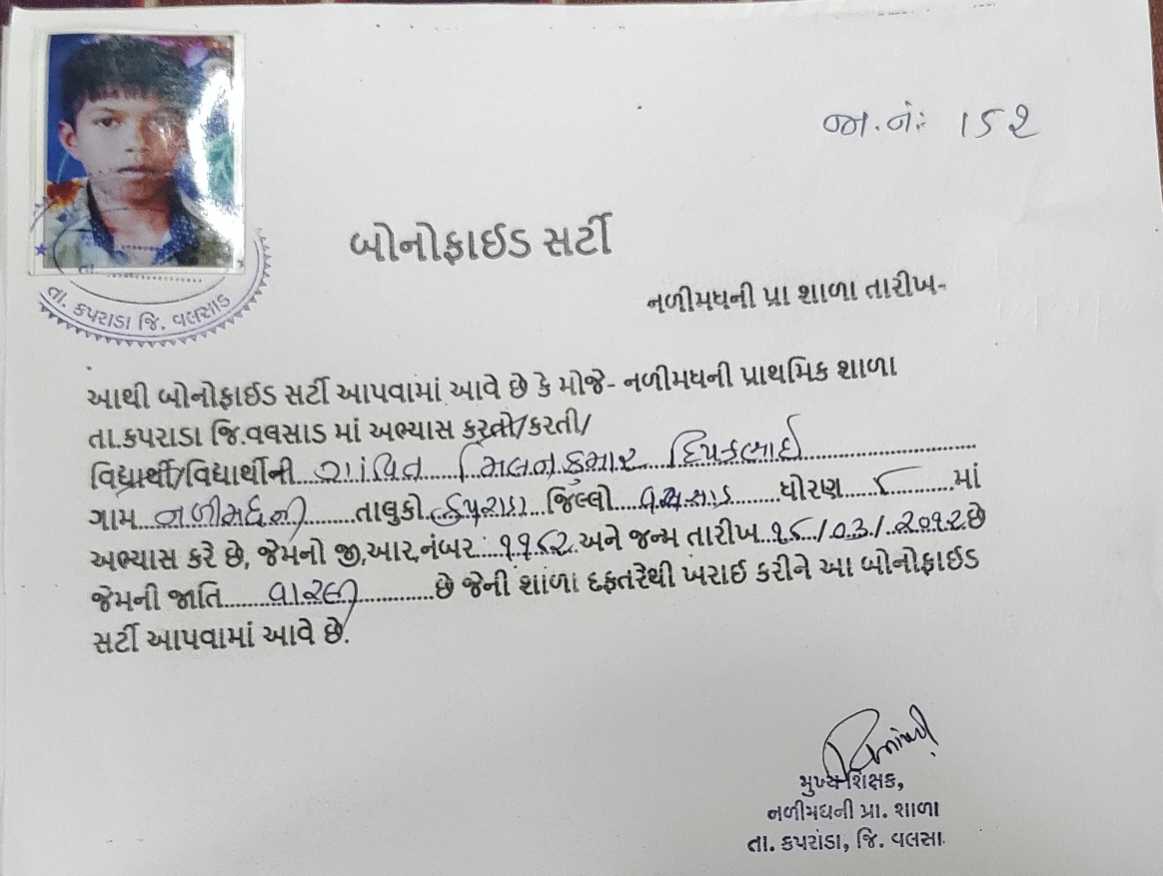 જા.નં: 152
બોનોફાઈડ સર્ટી
નળીમધની પ્રા શાળા તારીખ-
તા. કપરાડા જિ. વલસાડ
આથી બોનોફાઈડ સર્ટી આપવામાં આવે છે કે મોજે- નળીમધની પ્રાથમિક શાળા
તા.કપરાડા જિ.વલસાડ માં અભ્યાસ કરતો/કરતી/
વિદ્યાર્થી/વિદ્યાર્થીની મિલનકુમાર દિપકભાઈ
ગામ નળીમધની તાલુકો કપરાડા જિલ્લો વલસાડ ધોરણ ૮ માં
અભ્યાસ કરે છે, જેમનો જી,આર,નંબર: ૧૧૮૨ અને જન્મ તારીખ ૧૮/૦૩/૨૦૧૨ છે
જેમની જાતિ વારલી છે જેની શાળા દફતરેથી ખરાઈ કરીને આ બોનોફાઈડ
સર્ટી આપવામાં આવે છે.
મુખ્ય શિક્ષક,
નળીમધની પ્રા. શાળા
તા. કપરાડા, જિ. વલસા